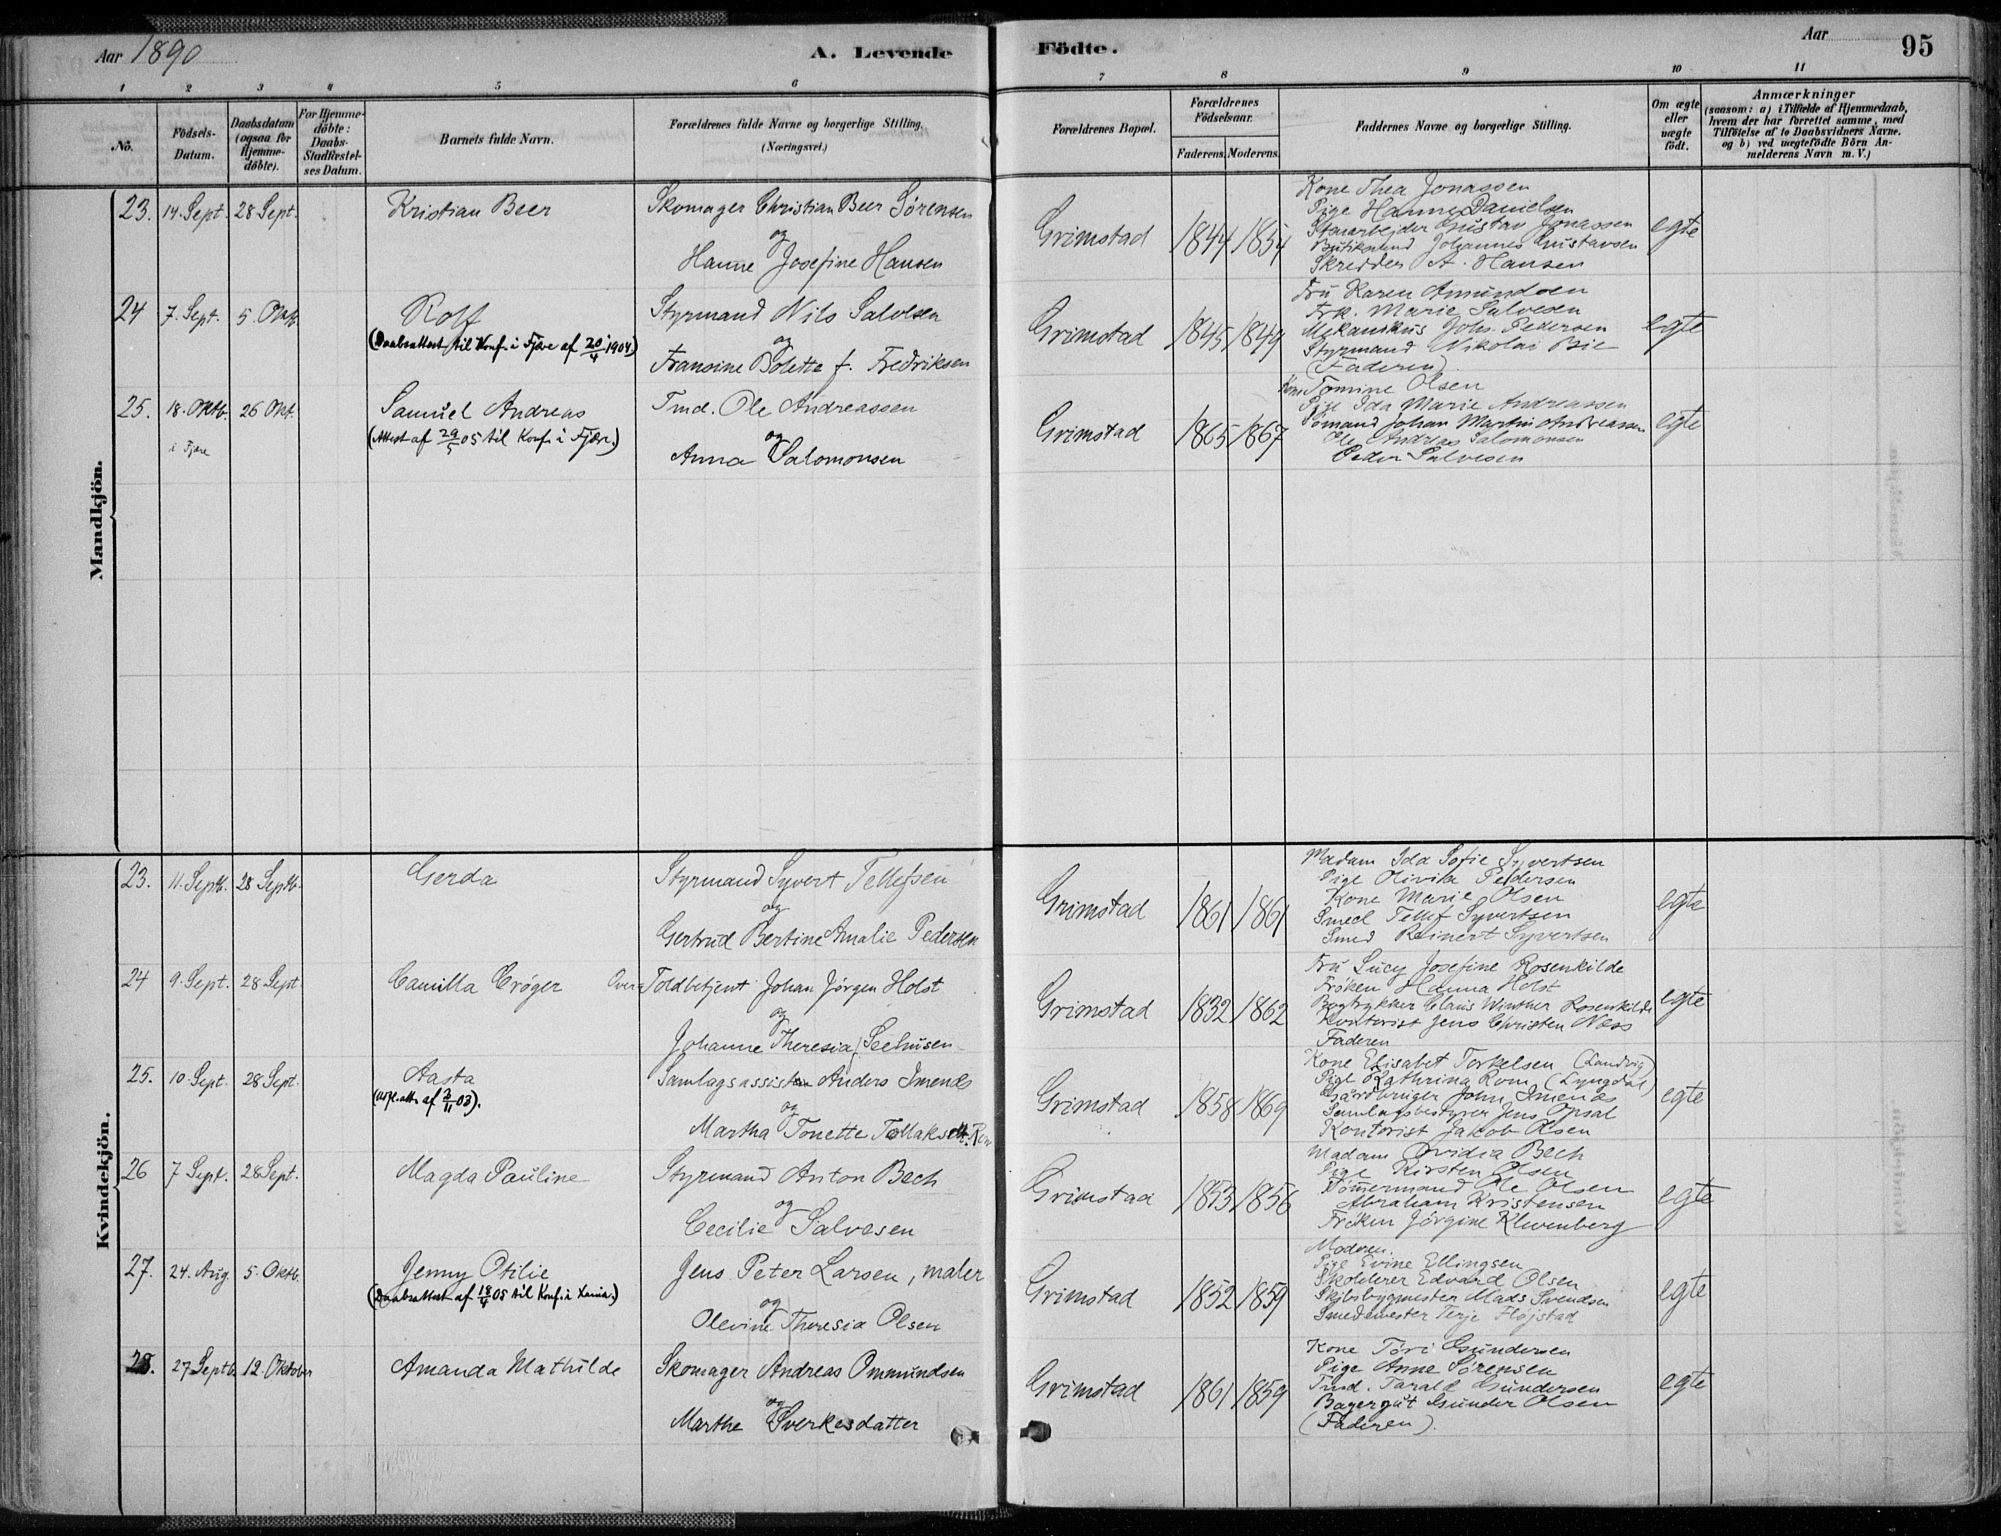 Aar 1890
A. Levende Födte.
Aar
95
1 2 3 4 5 6 7 8 9 10 11
No.
Födsels-Datum.
Daabsdatum (ogsaa for Hjemme-döbte).
For Hjemme-döbte: Daabs-Stadfæstel-ses Datum.
Barnets fulde Navn.
Forældrenes fulde Navne og borgerlige Stilling. (Næringsvei.)
Forældrenes Bopæl.
Forældrenes Födselsaar.
Faderens. Moderens.
Faddernes Navne og borgerlige Stilling.
Om ægte eller uægte födt.
Anmærkninger
(saasom: a) i Tilfælde af Hjemmedaab, hvem der har forrettet samme, med Tilföielse af to Daabsvidners Navne. og b) ved uægtefödte Börn An-melderens Navn m. V.)
Mandkjön.
23. 14. Sept. 28 Sept. Kristian Beer
Skomager Christian Beer Sørensen
og
Hanne Josefine Hansen
Grimstad 1844 1854
Kone Thea Jonassen
Pige Hanne Danielsen
Gustav Jonassen
Johannes Gustavsen
Skredder A. Hansen
egte
24 7. Sept. 5. Oktb. Rolf
(Daabsattest til Konf. i Fjære af 20/4 1904)
Styrmand Nils Salvesen
og
Fransine Bolette f. Fredriksen
Grimstad 1845 1849
Fru Karen Amundsen
Frk. Marie Salvesen
Mekanikus Johs. Pedersen
Styrmand Nikolai Bie
(Faderen).
egte
25. 18. Oktb. 26 Okt. Samuel Andreas
i Fjære
(Attest af 29/5 05 til Konf. i Fjære.)
Tmd. Ole Andreassen
og
Anna Salomonsen
Grimstad 1865 1867
Kone Tomine Olsen
Pige Ida Marie Andreassen
Sømand Johan Martin Andreassen
Ole Andreas Salomonsen
Peder Salvesen
egte
Kvindekjön.
23. 11. Septb. 28 Septb. Gerda
Styrmand Syvert Tellefsen
og
Gertrud Bertine Amalie Pedersen
Grimstad 1861 1861
Madam Ida Sofie Syvertsen
Pige Olivia Pedersen
Kone Marie Olsen
Smed Tellef Syvertsen
Smed Reinert Syvertsen
egte
24 9. Sept. 28 Sept Camilla Crøger
Overtoldbetjent Johan Jørgen Holst
og
Johanne Theresia f. Seehusen
Grimstad 1832 1862
Fru Lucy Josefine Rosenkilde
Frøken Hanna Holst
Bogtrykker Claus Winther Rosenkilde
Kontorist Jens Christen Næss
Faderen
egte
25. 10. Sept. 28 Sept. Aasta
af 3/11 03).
Samlagsassistent Anders Imenes
og
Martha Tonette Tollaksdtr. Rom
Grimstad 1858 1869
Kone Elisabet Torkelsen (Landvig)
Pige Kathrina Rom (Lyngdal)
Gårdbruger John Imenes
Samlagsbestyrer Jens Opsal
Kontorist Jakob Olsen
egte
26 7 Sept. 28 Sept. Magda Pauline
Styrmand Anton Bech
og
Cecilie Salvesen
Grimstad 1853 1856
Madam Ovidia Bech
Pige Kirsten Olsen
Tømmermand Ole Olsen
Abraham Kristensen
Frøken Jørgine Klevenberg
egte
27. 24. Aug. 5. Oktb. Jenny Otilie
(Daabsattest af 18/4 05 til Konf. i Xania.)
Jens Peter Larsen, maler
og
Olevine Theresia Olsen
Grimstad 1852 1859
Modren.
Pige Evine Ellingsen
Skolelærer Edvard Olsen
Skibsbygmester Mads Svendsen
Smedemester Terje Fløjstad
egte
28. 27 Septb. 12. Oktober Amanda Mathilde
Skomager Andreas Ommundsen
og
Marthe Sverkesdatter
Grimstad 1861 1859
Kone Tori Gundersen
Pige Anne Sørensen
Tmd. Tarald Gundersen
Bagergut Gunder Olsen
(Faderen).
egte